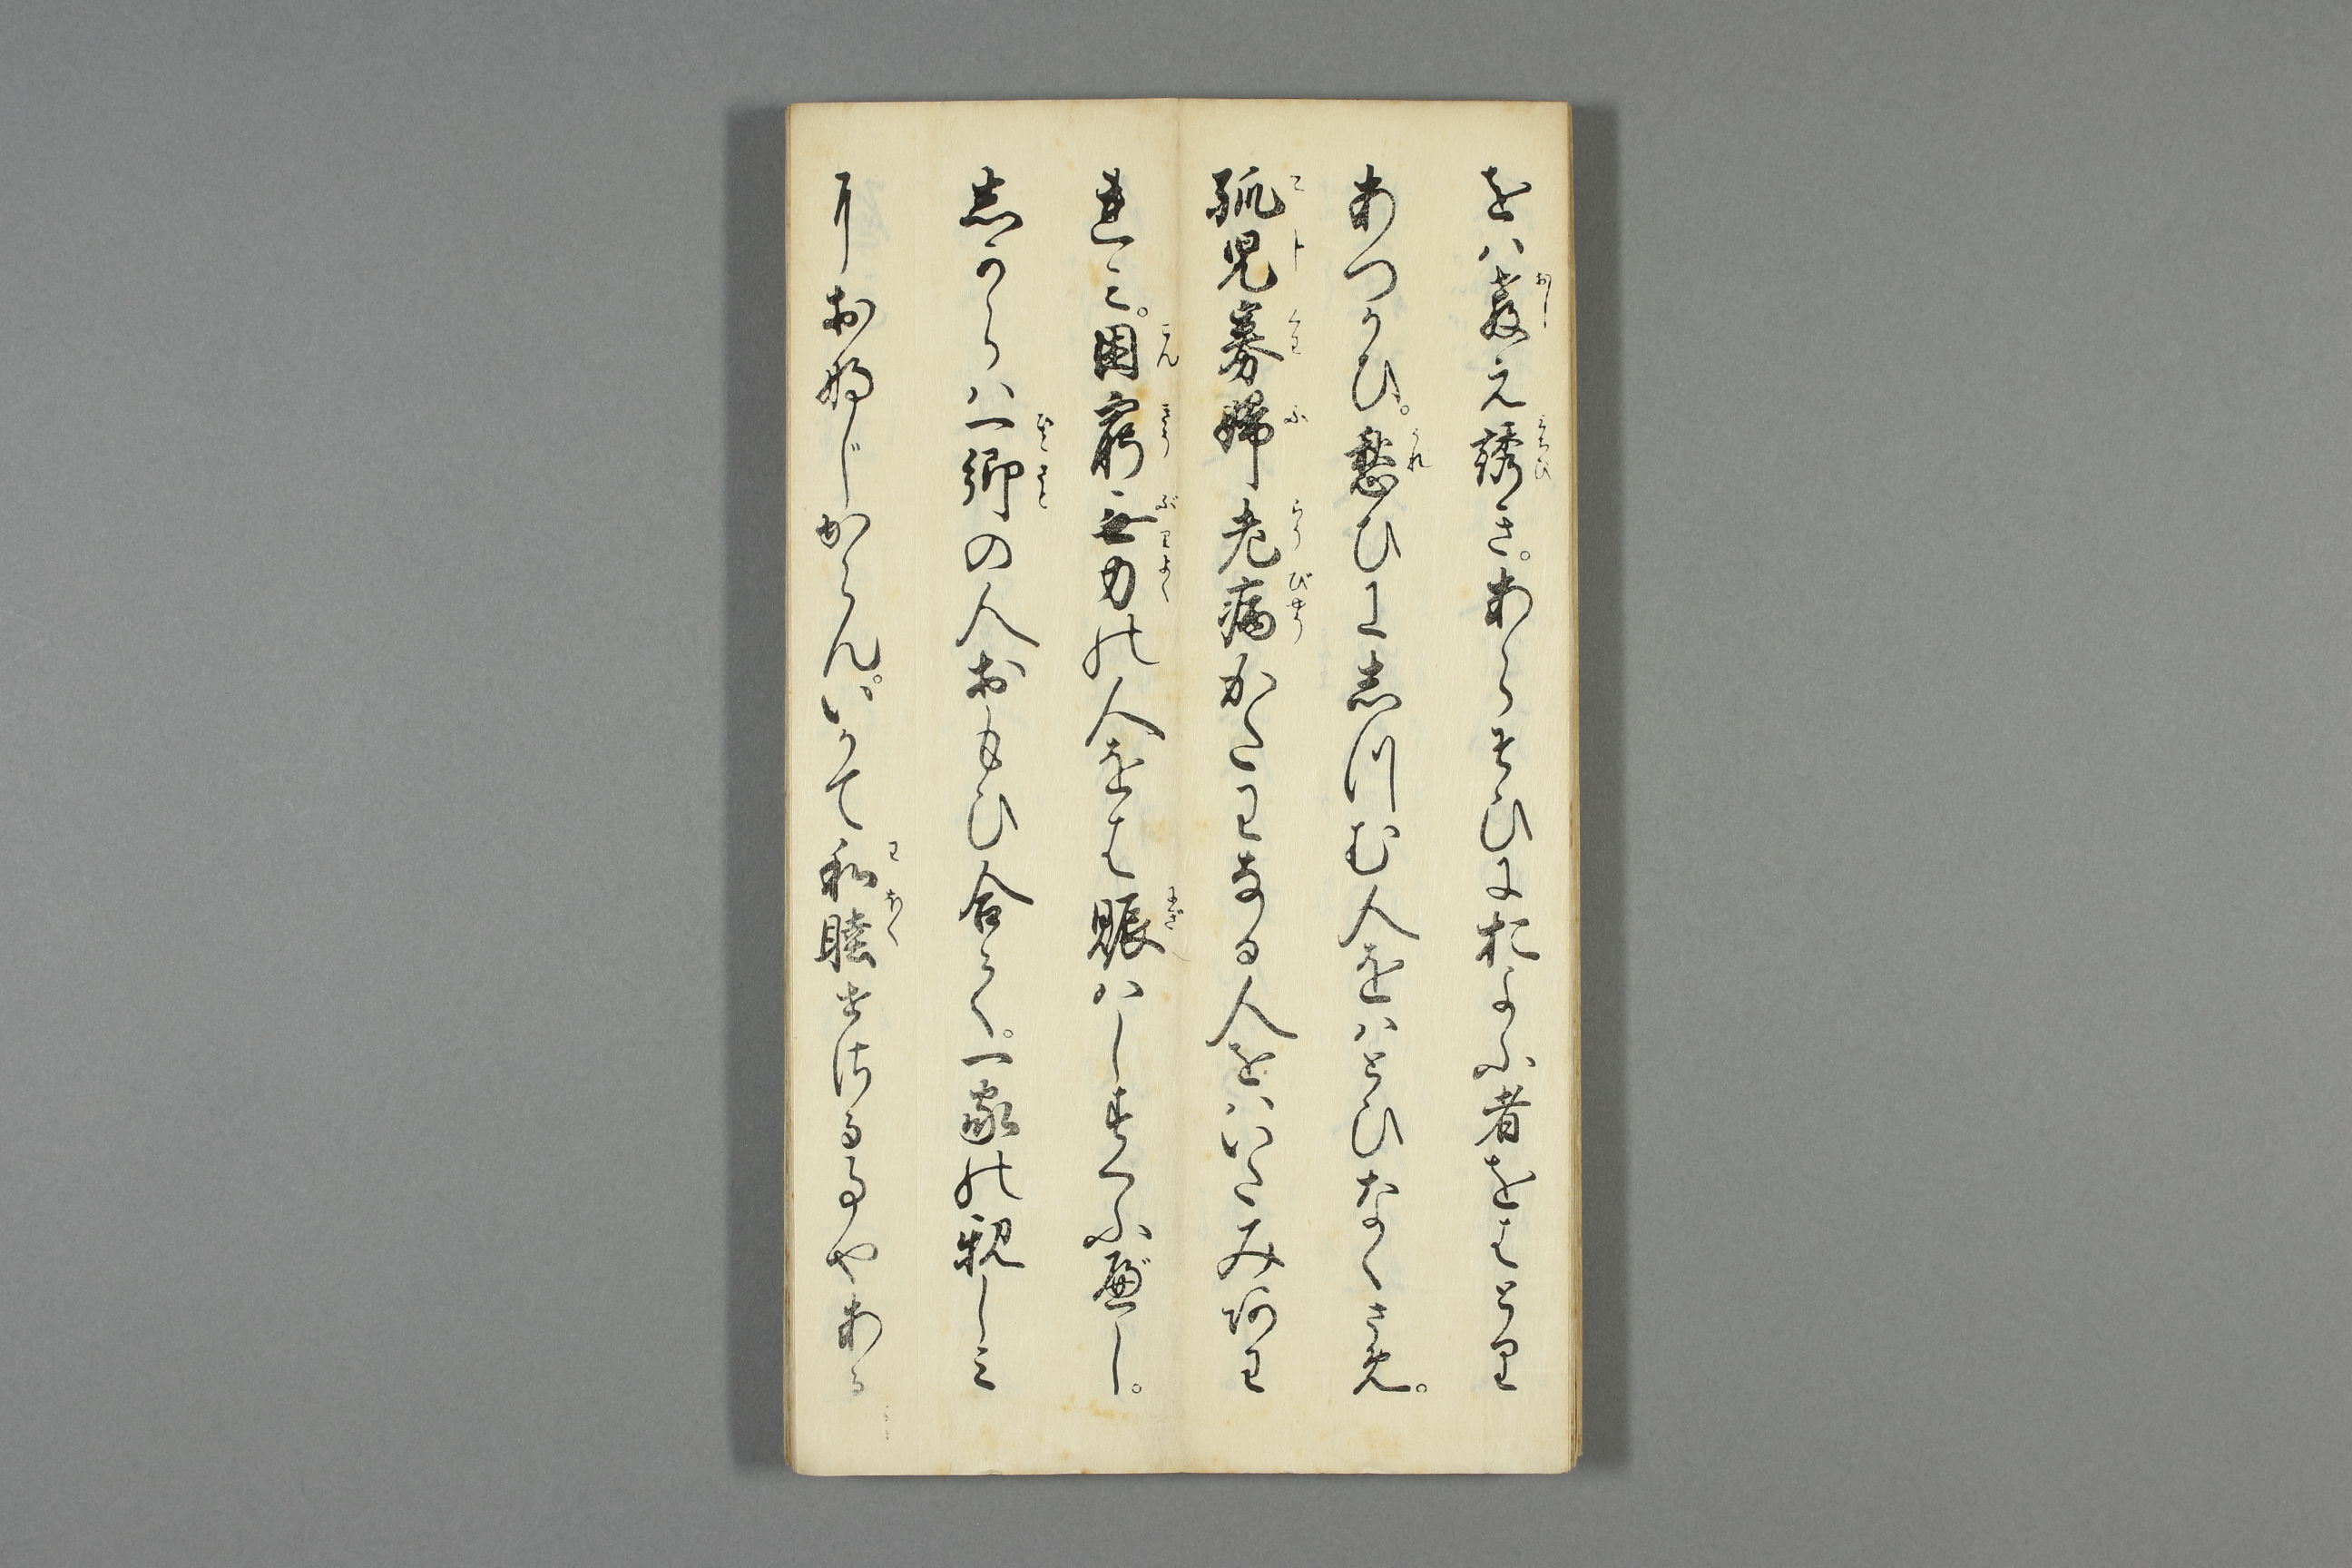 をハ教え誘き。あらそひにおよふ者をはとり
あつかひ。愁ひにしつむ人をハとひなくさめ。
孤児寡婦老病かたわなる人をハいたみあわ
れみ。困窮無力の人をは賑ハしすくふべし。
しからハ一郷の人おもひ合て。一家の親しみ
におなじからん。いかて和睦せさる事やある